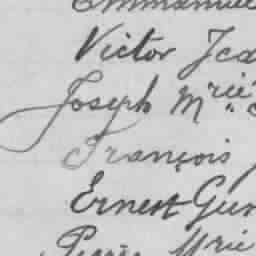 Emmanuel
Victor Jea
Joseph Mrie
François
Ernest
Pierre Mrie